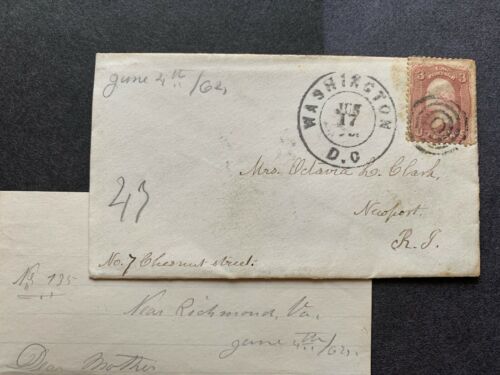 june 4th/64,
WASHINGTON
JUN
17
D.C
3 3
Mrs. Octavia L. Clark,
Newport.
R. I.
47
No. 7 Chesnut street.
No 135
Near Richmond, Va.
june 4th/64,
Dear Mother